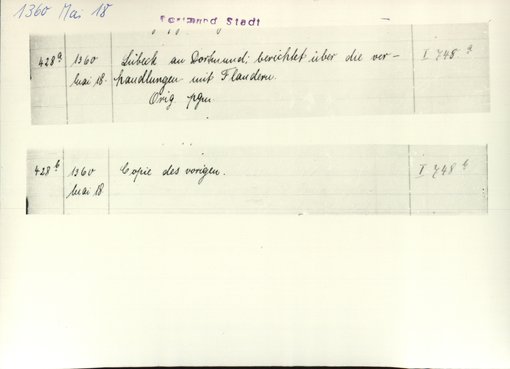 1360 Mai 18
Dortmund Stadt
428a 1360 Lübeck an Dortmund; berichtet über die ver- I 748.a
Mai 18. handlungen mit Flandern.
Orig pgm
428b 1360 Copie des vorigen. I 748b
Mai 18